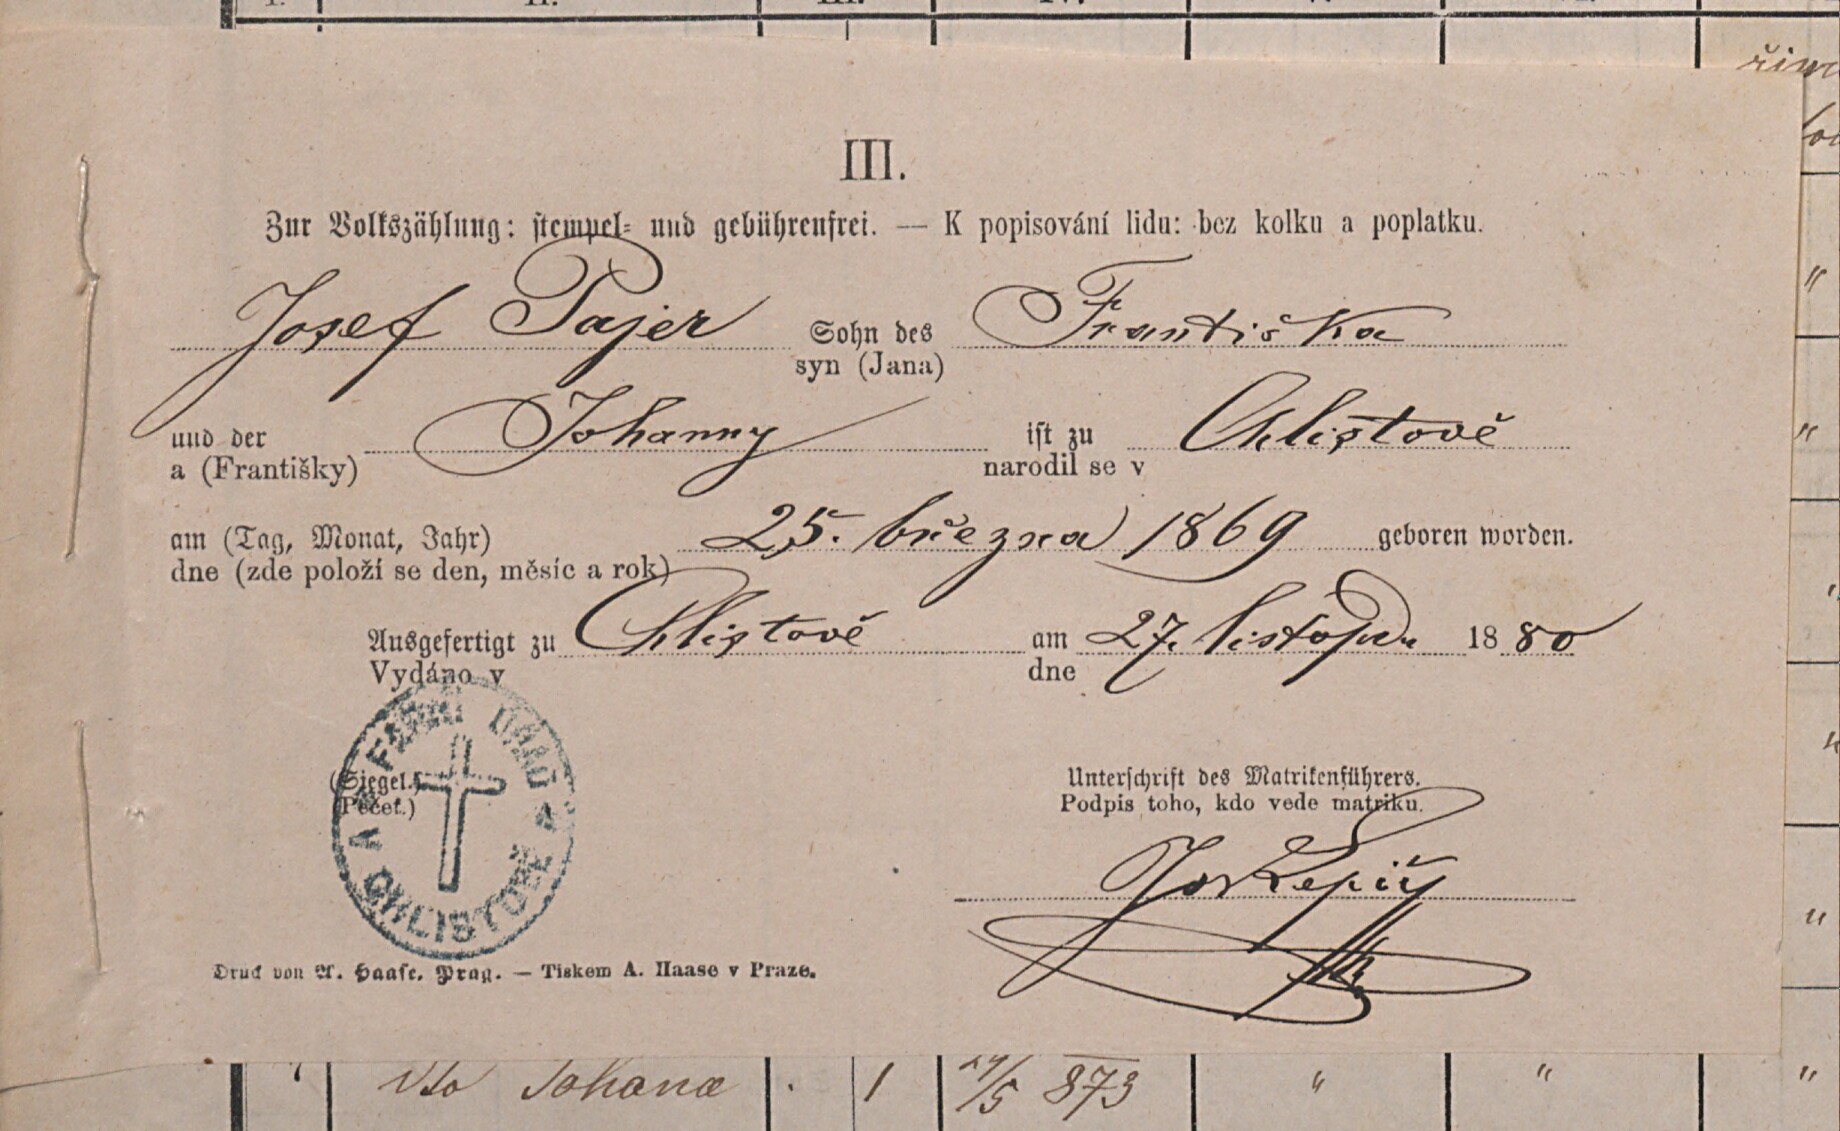 III.
Zur Volkszählung: stempel- und gebührenfrei. — K popisování lidu: bez kolku a poplatku.
Josef Pajer Sohn des Františka
syn (Jana)
und der Johanny ist zu Chlistově
a (Františky) narodil se v
am (Tag, Monat, Jahr) 25. března 1869 geboren worden.
dne (zde položí se den, měsíc a rok)
Ausgefertigt zu Chlistově am 27. listopadu 1880
Vydáno v dne
(Siegel.)
(Pečeť.)
CHLISTOVĚ
Unterschrift des Matrikenführers.
Podpis toho, kdo vede matriku.
Jos Řepiš
Druck von A. Haase, Prag. — Tiskem A. Haase v Praze.
Johana . 1 24/5 873 " " "